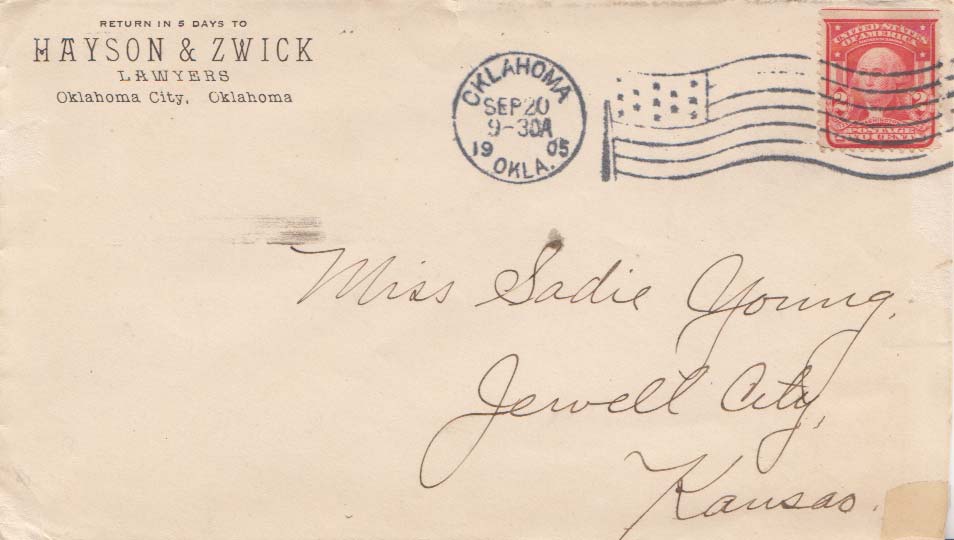 RETURN IN 5 DAYS TO
HAYSON & ZWICK
LAWYERS
Oklahoma City, Oklahoma
OKLAHOMA
SEP 20
9-30A
1905
OKLA.
UNITED STATES
OF AMERICA
2 2
POSTAGE
Miss Sadie Young,
Jewell City,
Kansas.